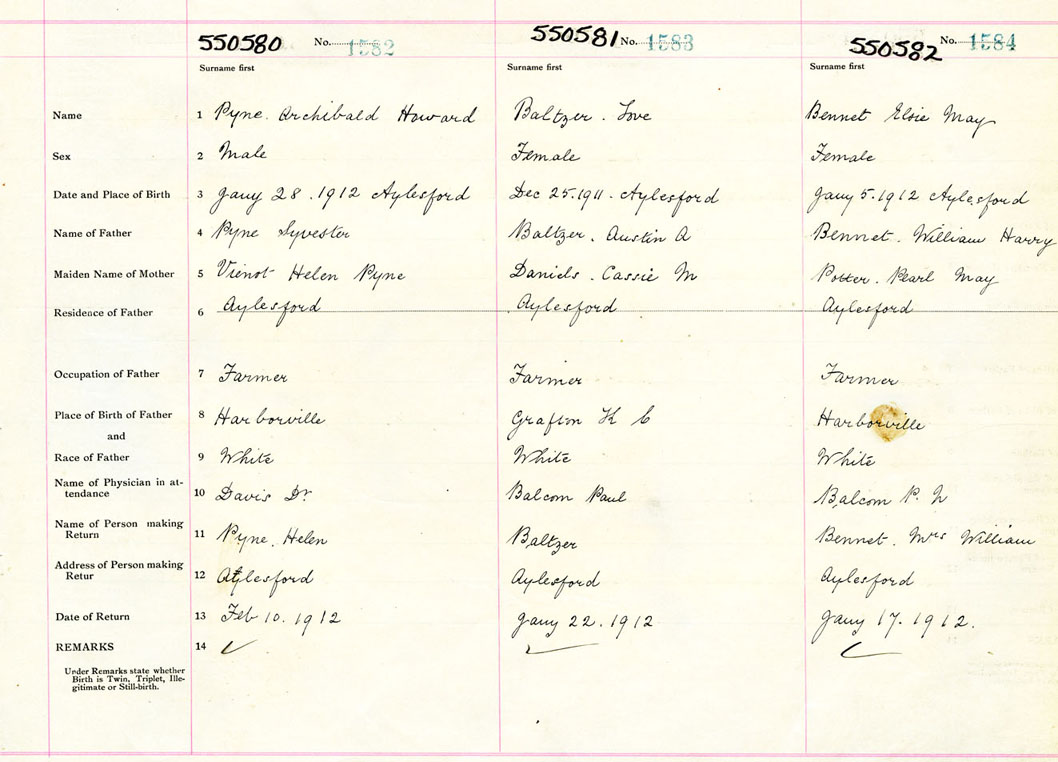 550580 No. 1582 550581 No. 1583 550582 No. 1584
Surname first Surname first Surname first
Name 1 Pyne. Archibald Howard Baltzer. Love Bennet Elsie May
Sex 2 Male Female Female
Date and Place of Birth 3 Jany 28. 1912 Aylesford Dec 25. 1911. Aylesford Jany 5. 1912 Aylesford
Name of Father 4 Pyne Syvester Baltzer. Austin A Bennet. William Harry
Maiden Name of Mother 5 Vienot Helen Pyne Daniels. Cassie M Potter. Pearl May
Residence of Father 6 Aylesford Aylesford Aylesford
Occupation of Father 7 Farmer Farmer Farmer
Place of Birth of Father 8 Harborville Grafton K C Harborville
and
Race of Father 9 White White White
Name of Physician in at-
tendance 10 Davis Dr Balcom Paul Balcom P. N
Name of Person making
Return 11 Pyne. Helen Baltzer Bennet. Mrs William
Address of Person making
Retur 12 Aylesford Aylesford Aylesford
Date of Return 13 Feb 10. 1912 Jany 22. 1912 Jany 17. 1912.
REMARKS 14
Under Remarks state whether
Birth is Twin, Triplet, Ille-
gitimate or Still-birth.